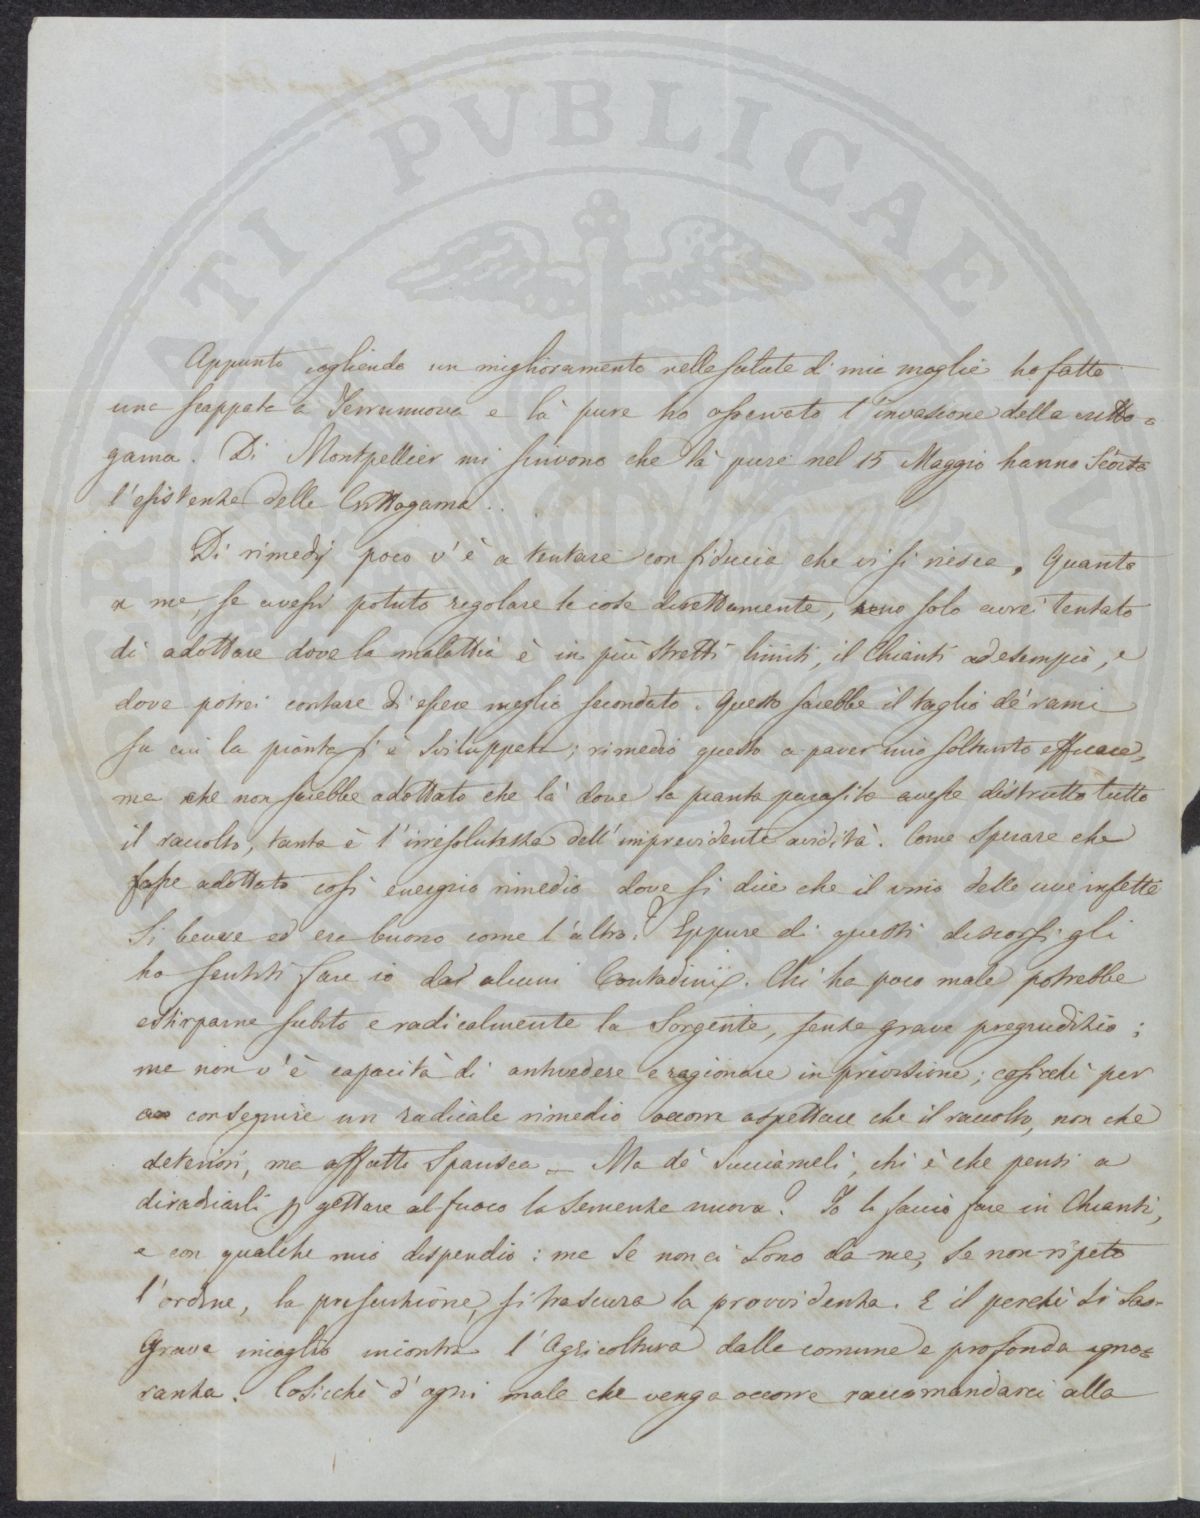 PUBLICAE
Appunto cogliendo un miglioramento nella salute di mia moglie ho fatto
una scappata a Terranuova e là pure ho osservato l'invasione della critto=
gama. Di Montpellier mi scrivono che là pure nel 15 Maggio hanno scorta
l'esistenza della Crittogama.
Di rimedj poco v'è a tentare con fiducia che vi si riesca. Quanto
a me, se avessi potuto regolare le cose direttamente, uno solo avrei tentato
di adottare dove la malattia è in più stretti limiti, il Chianti ad esempio, e
dove potrei contare di essere meglio secondato. Questo sarebbe il taglio de' rami
su cui la pianta si è sviluppata; rimedio questo a parer mio soltanto efficace,
ma che non sarebbe adottato che là dove la pianta parasita avesse distrutto tutto
il raccolto, tanta è l'irresolutezza dell'imprevidente avidità. Come sperare che
fosse adottato così energico rimedio dove si dice che il vino delle uve infette
si beveva ed era buono come l'altro? Eppure di questi discorsi gli
ho sentiti fare io da alcuni Contadini. Chi ha poco male potrebbe
estirparne subito e radicalmente la sorgente, senza grave pregiudizio;
ma non v'è capacità di antivedere e ragionare in previsione; cosicchè per
conseguire un radicale rimedio occorre aspettare che il raccolto, non che
deteriori, ma affatto sparisca _ Ma de' succiameli, chi è che pensi a
diradicarli e gettare al fuoco la semenza nuova? Io lo faccio fare in Chianti,
e con qualche mio dispendio: ma se non ci sono da me, se non ripeto
l'ordine, la prescrizione, si trascura la provvidenza. E il perchè di
grave incaglio incontra l'Agricoltura dalla comune e profonda igno=
ranza. Cosicchè d'ogni male che venga occorre raccomandarci alla